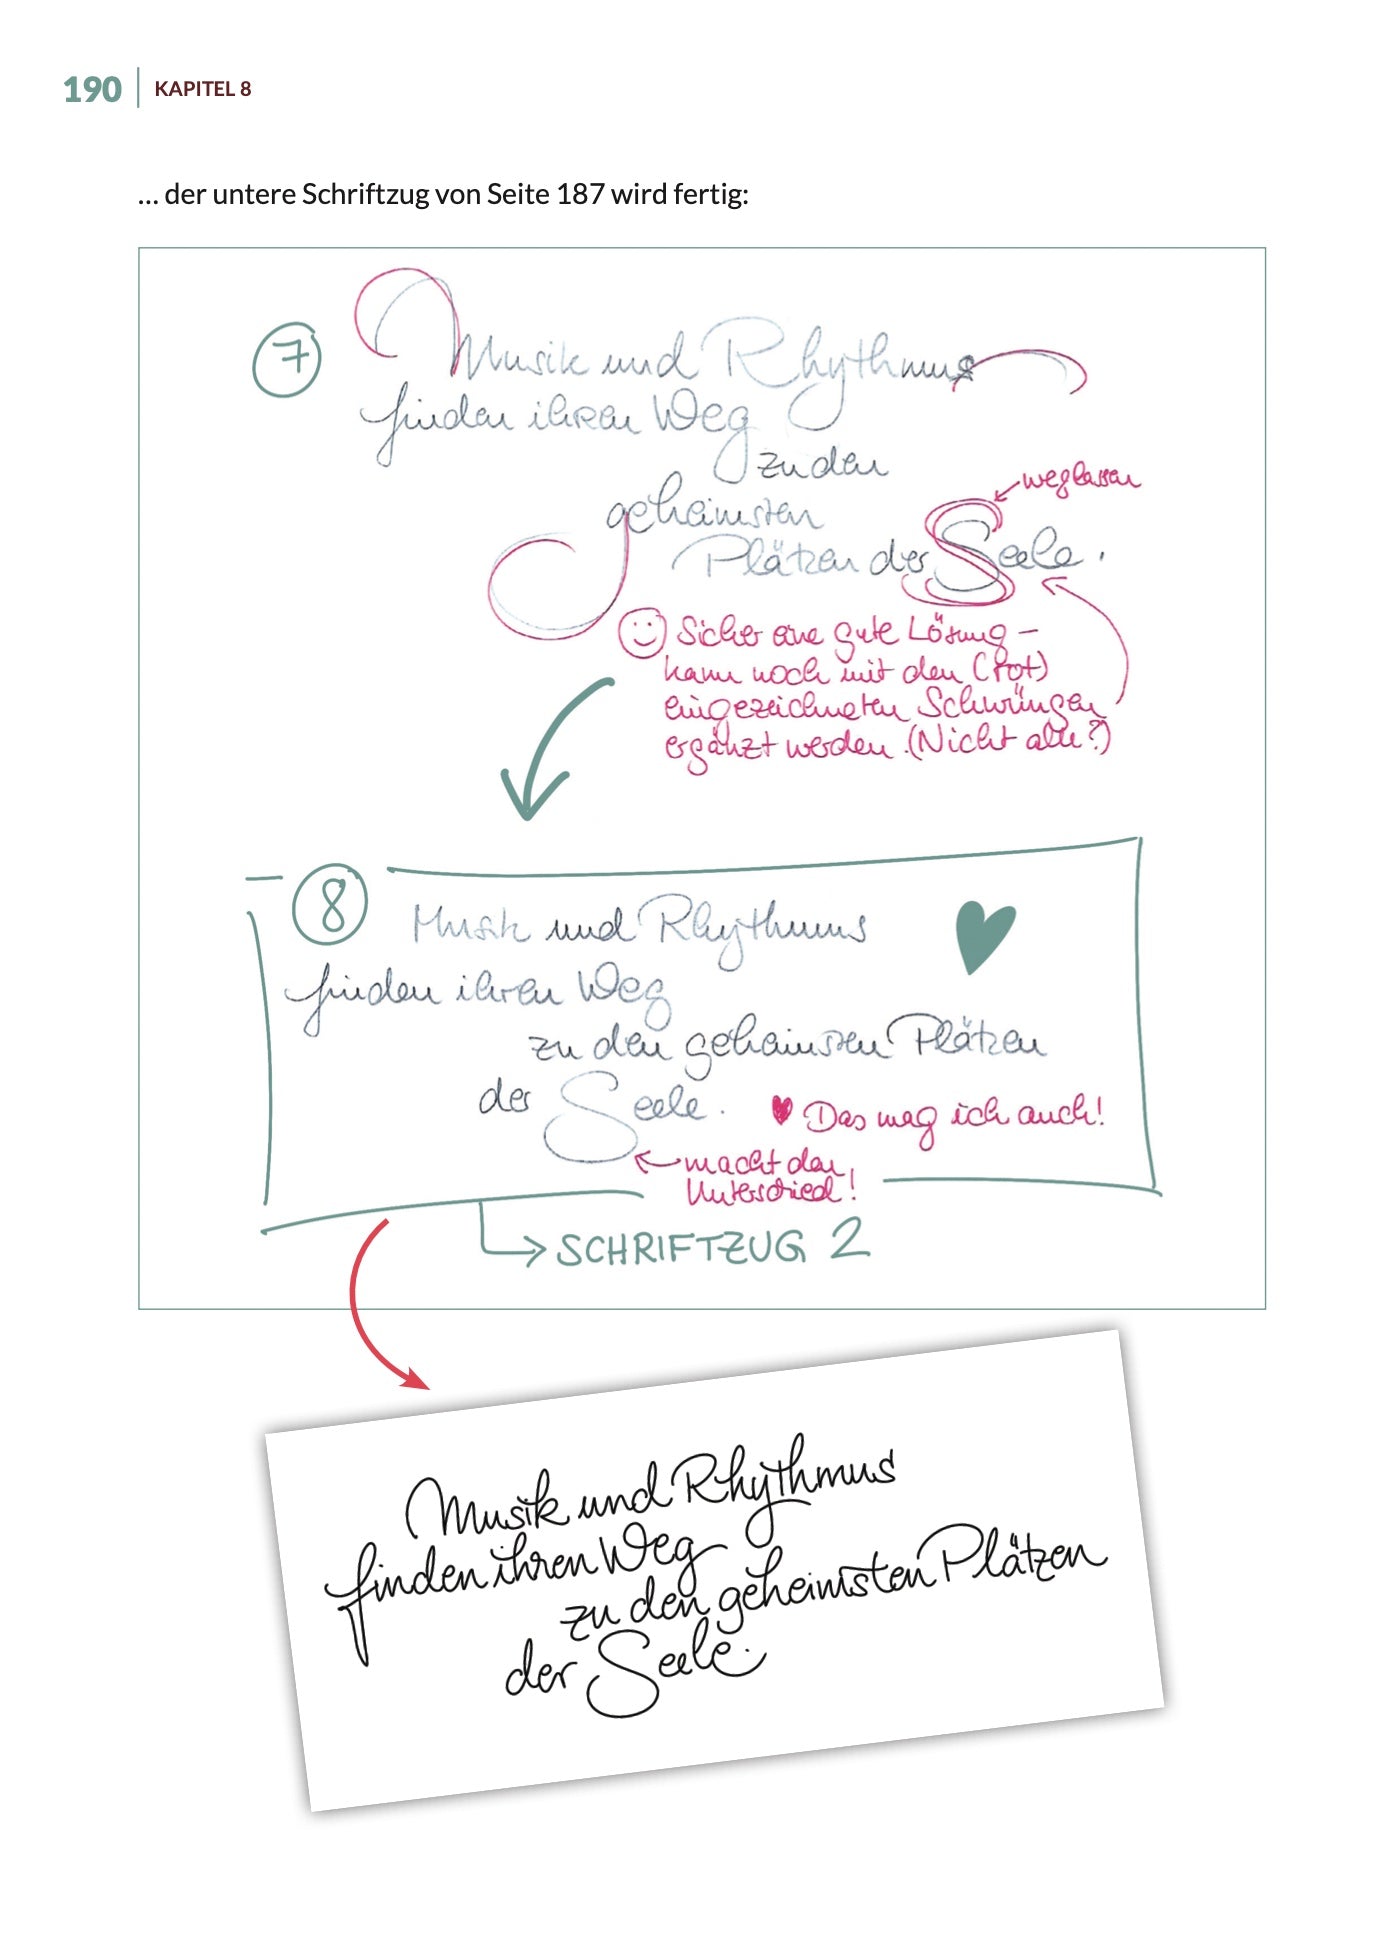 190 | KAPITEL 8
... der untere Schriftzug von Seite 187 wird fertig:
7
Musik und Rhythmus
finden ihren Weg
zu den
weglassen
geheimsten
Plätzen der Seele.
Sicher eine gute Lösung –
kann noch mit den (rot)
eingezeichneten Schwüngen
ergänzt werden. (Nicht alle?)
8
Musik und Rhythmus
finden ihren Weg
zu den geheimsten Plätzen
der Seele.
Das mag ich auch!
macht den
Unterschied!
SCHRIFTZUG 2
Musik und Rhythmus
finden ihren Weg
zu den geheimsten Plätzen
der Seele.